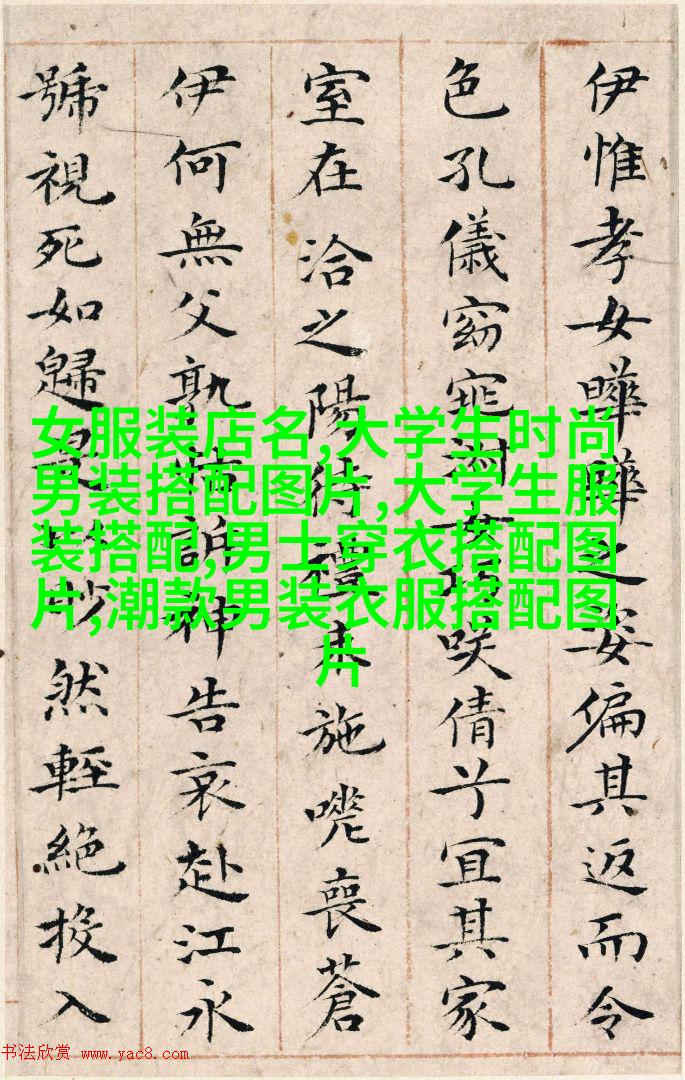 伊惟孝女曄曄之姿偏其返而令
色孔儀窈窕淑女巧咲倩兮宜其家
室在洽之陽待禮未施嗟喪蒼
伊何無父孰怙訴神告哀赴江永
號視死如歸是眇然輕絕投入
女服装店名,大学生时尚
男装搭配图片,大学生服
装搭配,男士穿衣搭配图
片,潮款男装衣服搭配图
片
书法欣赏 www.yac8.com